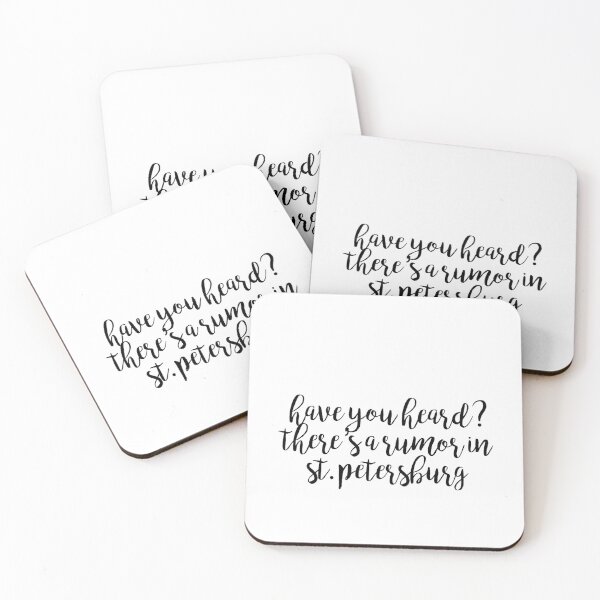 have you heard?
have you heard?
there's a rumor in
st. petersburg
have you heard?
there's a rumor in
st. 
have you heard?
there's a rumor in
st. petersburg